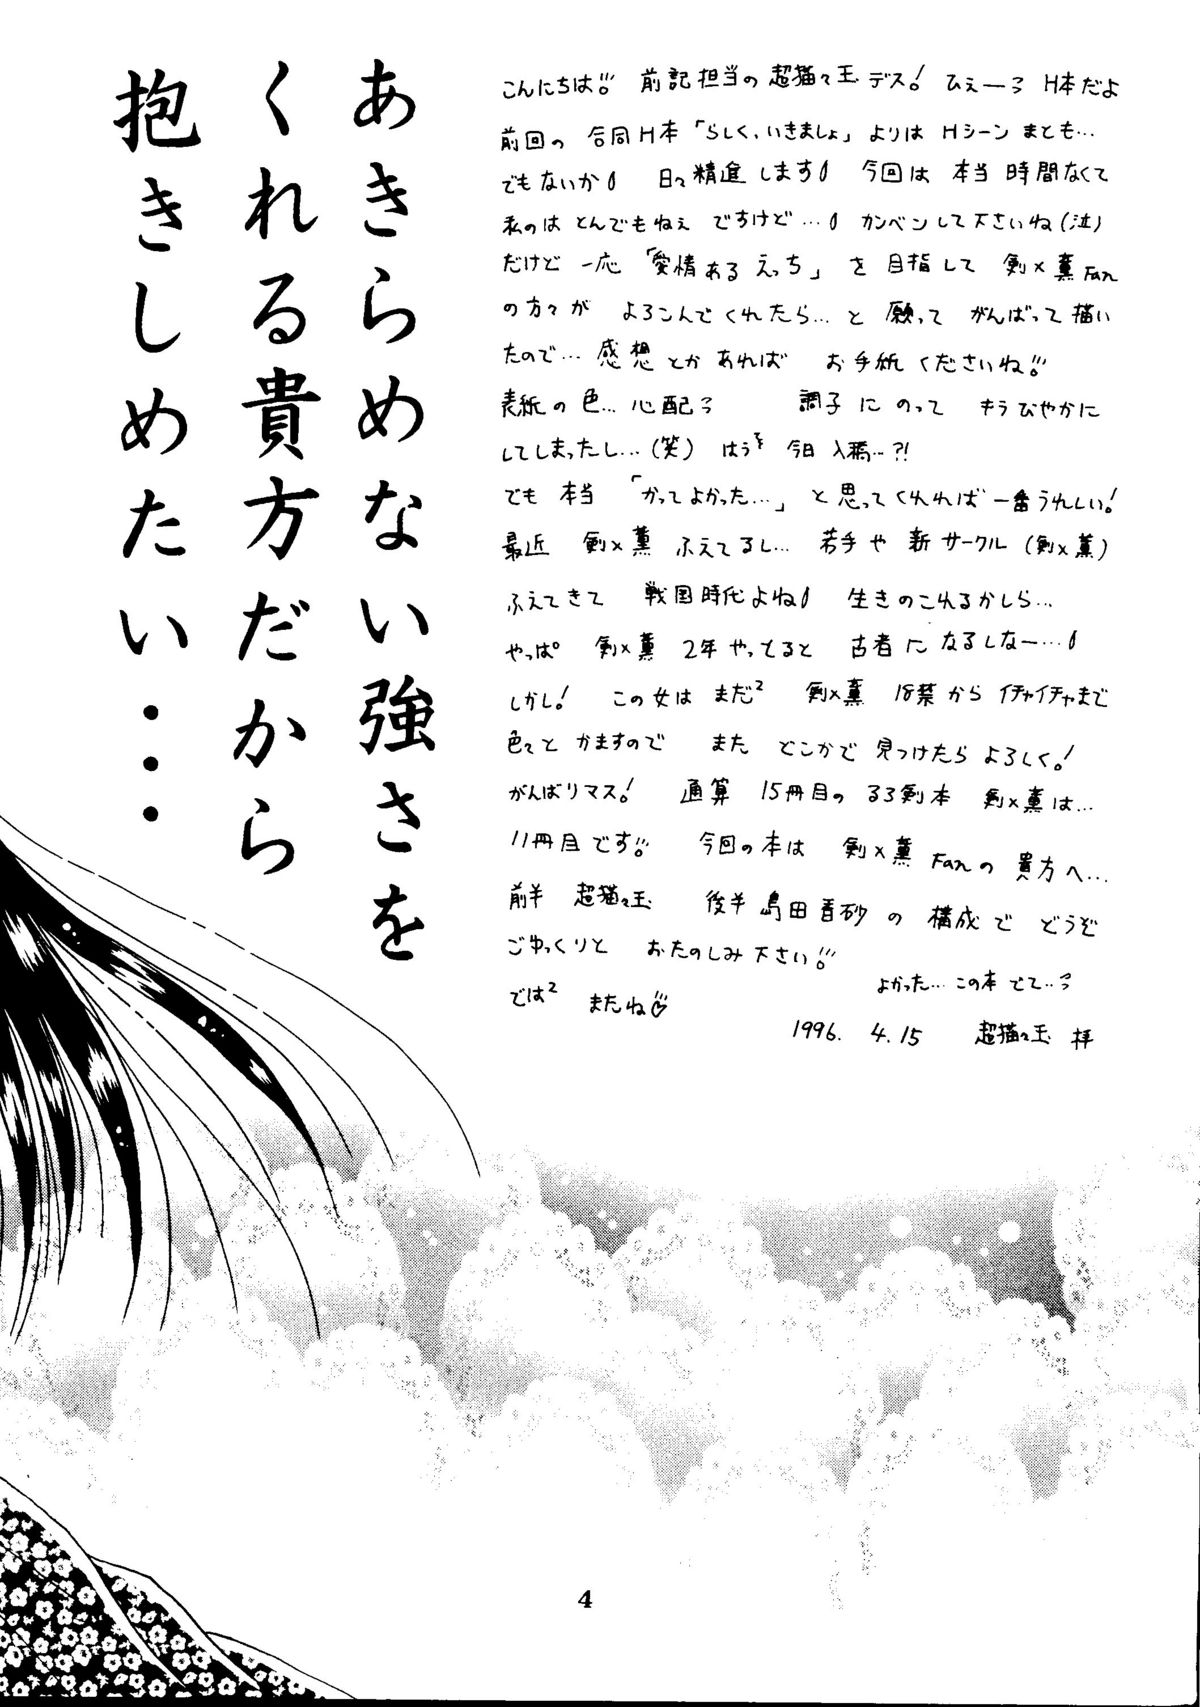 あきらめない強さを
くれる貴方だから
抱きしめたい・・・
こんにちは!! 前記担当の超猫々玉デス! ひぇーっ H本だよ
前回の 合同H本「らしく、いきましょ」よりは Hシーン まとも…
でもないか 日々精進します 今回は 本当 時間なくて
私のは とんでもねぇ ですけど… カンベンして下さいね(泣)
だけど 一応「愛情ある えっち」を 目指して 剣×薫Fan
の方々が よろこんでくれたら…と 願って がんばって描い
たので… 感想とかあれば お手紙くださいね!!
表紙の色…心配っ 調子にのって キラびやかに
してしまったし…(笑) はうを 今日入稿…?!
でも 本当 「かってよかった…」と思ってくれれば一番うれしい!
最近 剣×薫ふえてるし… 若手や 新サークル(剣×薫)
ふえてきて 戦国時代よね 生きのこれるかしら…
やっぱ 剣×薫 2年やってると 古者に なるしなー…
しかし! この女は まだ² 剣×薫 18禁から イチャイチャまで
色々と かますので また どこかで 見つけたら よろしく!
がんばリマス! 通算 15冊目の るろ剣本 剣×薫は…
11冊目です!! 今回の本は 剣×薫Fanの 貴方へ…
前半 超猫々玉 後半 島田香砂の 構成で どうぞ
ごゆっくりと おたのしみ下さい!!
では² またね♡ よかった…この本でて…っ
1996. 4.15 超猫々玉 拝
4